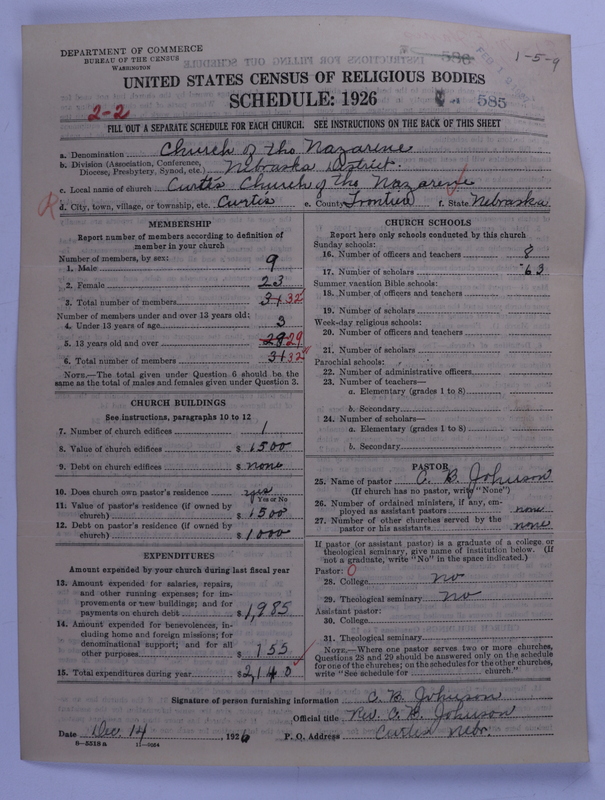 DEPARTMENT OF COMMERCE
BUREAU OF THE CENSUS
WASHINGTON
586
1-5-9
UNITED STATES CENSUS OF RELIGIOUS BODIES
SCHEDULE: 1926
2-2
585
FILL OUT A SEPARATE SCHEDULE FOR EACH CHURCH. SEE INSTRUCTIONS ON THE BACK OF THIS SHEET
a. Denomination Church of the Nazarene
b. Division (Association, Conference, Diocese, Presbytery, Synod, etc.) Nebraska District.
c. Local name of church Curtis Church of the Nazarene
d. City, town, village, or township, etc. Curtis e. County Frontier f. State Nebraska
MEMBERSHIP
Report number of members according to definition of
member in your church
Number of members, by sex:
1. Male 9
2. Female 23
3. Total number of members 31 32
Number of members under and over 13 years old:
4. Under 13 years of age 3
5. 13 years old and over 28 29
6. Total number of members 31 32
NOTE.—The total given under Question 6 should be the
same as the total of males and females given under Question 3.
CHURCH BUILDINGS
See instructions, paragraphs 10 to 12
7. Number of church edifices 1
8. Value of church edifices $ 1500
9. Debt on church edifices $ none
10. Does church own pastor's residence yes
Yes or No
11. Value of pastor's residence (if owned by
church) $ 1500
12. Debt on pastor's residence (if owned by
church) $ 1000
EXPENDITURES
Amount expended by your church during last fiscal year
13. Amount expended for salaries, repairs,
and other running expenses; for im-
provements or new buildings; and for
payments on church debt $ 1,985
14. Amount expended for benevolences, in-
cluding home and foreign missions; for
denominational support; and for all
other purposes $ 155
15. Total expenditures during year $ 2,140
CHURCH SCHOOLS
Report here only schools conducted by this church
Sunday schools:
16. Number of officers and teachers 8
17. Number of scholars 63
Summer vacation Bible schools:
18. Number of officers and teachers
19. Number of scholars
Week-day religious schools:
20. Number of officers and teachers
21. Number of scholars
Parochial schools:
22. Number of administrative officers
23. Number of teachers—
a. Elementary (grades 1 to 8)
b. Secondary
24. Number of scholars—
a. Elementary (grades 1 to 8)
b. Secondary
PASTOR
25. Name of pastor C. B. Johnson
(If church has no pastor, write "None")
26. Number of ordained ministers, if any, em-
ployed as assistant pastors none
27. Number of other churches served by the
pastor or his assistants none
If pastor (or assistant pastor) is a graduate of a college or
theological seminary, give name of institution below. (If
not a graduate, write "No" in the space indicated.)
Pastor: 0
28. College no
29. Theological seminary no
Assistant pastor:
30. College
31. Theological seminary
NOTE.—Where one pastor serves two or more churches,
Questions 28 and 29 should be answered only on the schedule
for one of the churches; on the schedules for the other churches,
write "See schedule for church."
Signature of person furnishing information C. B. Johnson
Official title Rev. C. B. Johnson
Date Dec. 14, 1926 P. O. Address Curtis Nebr.
8—5318 a 11—9264